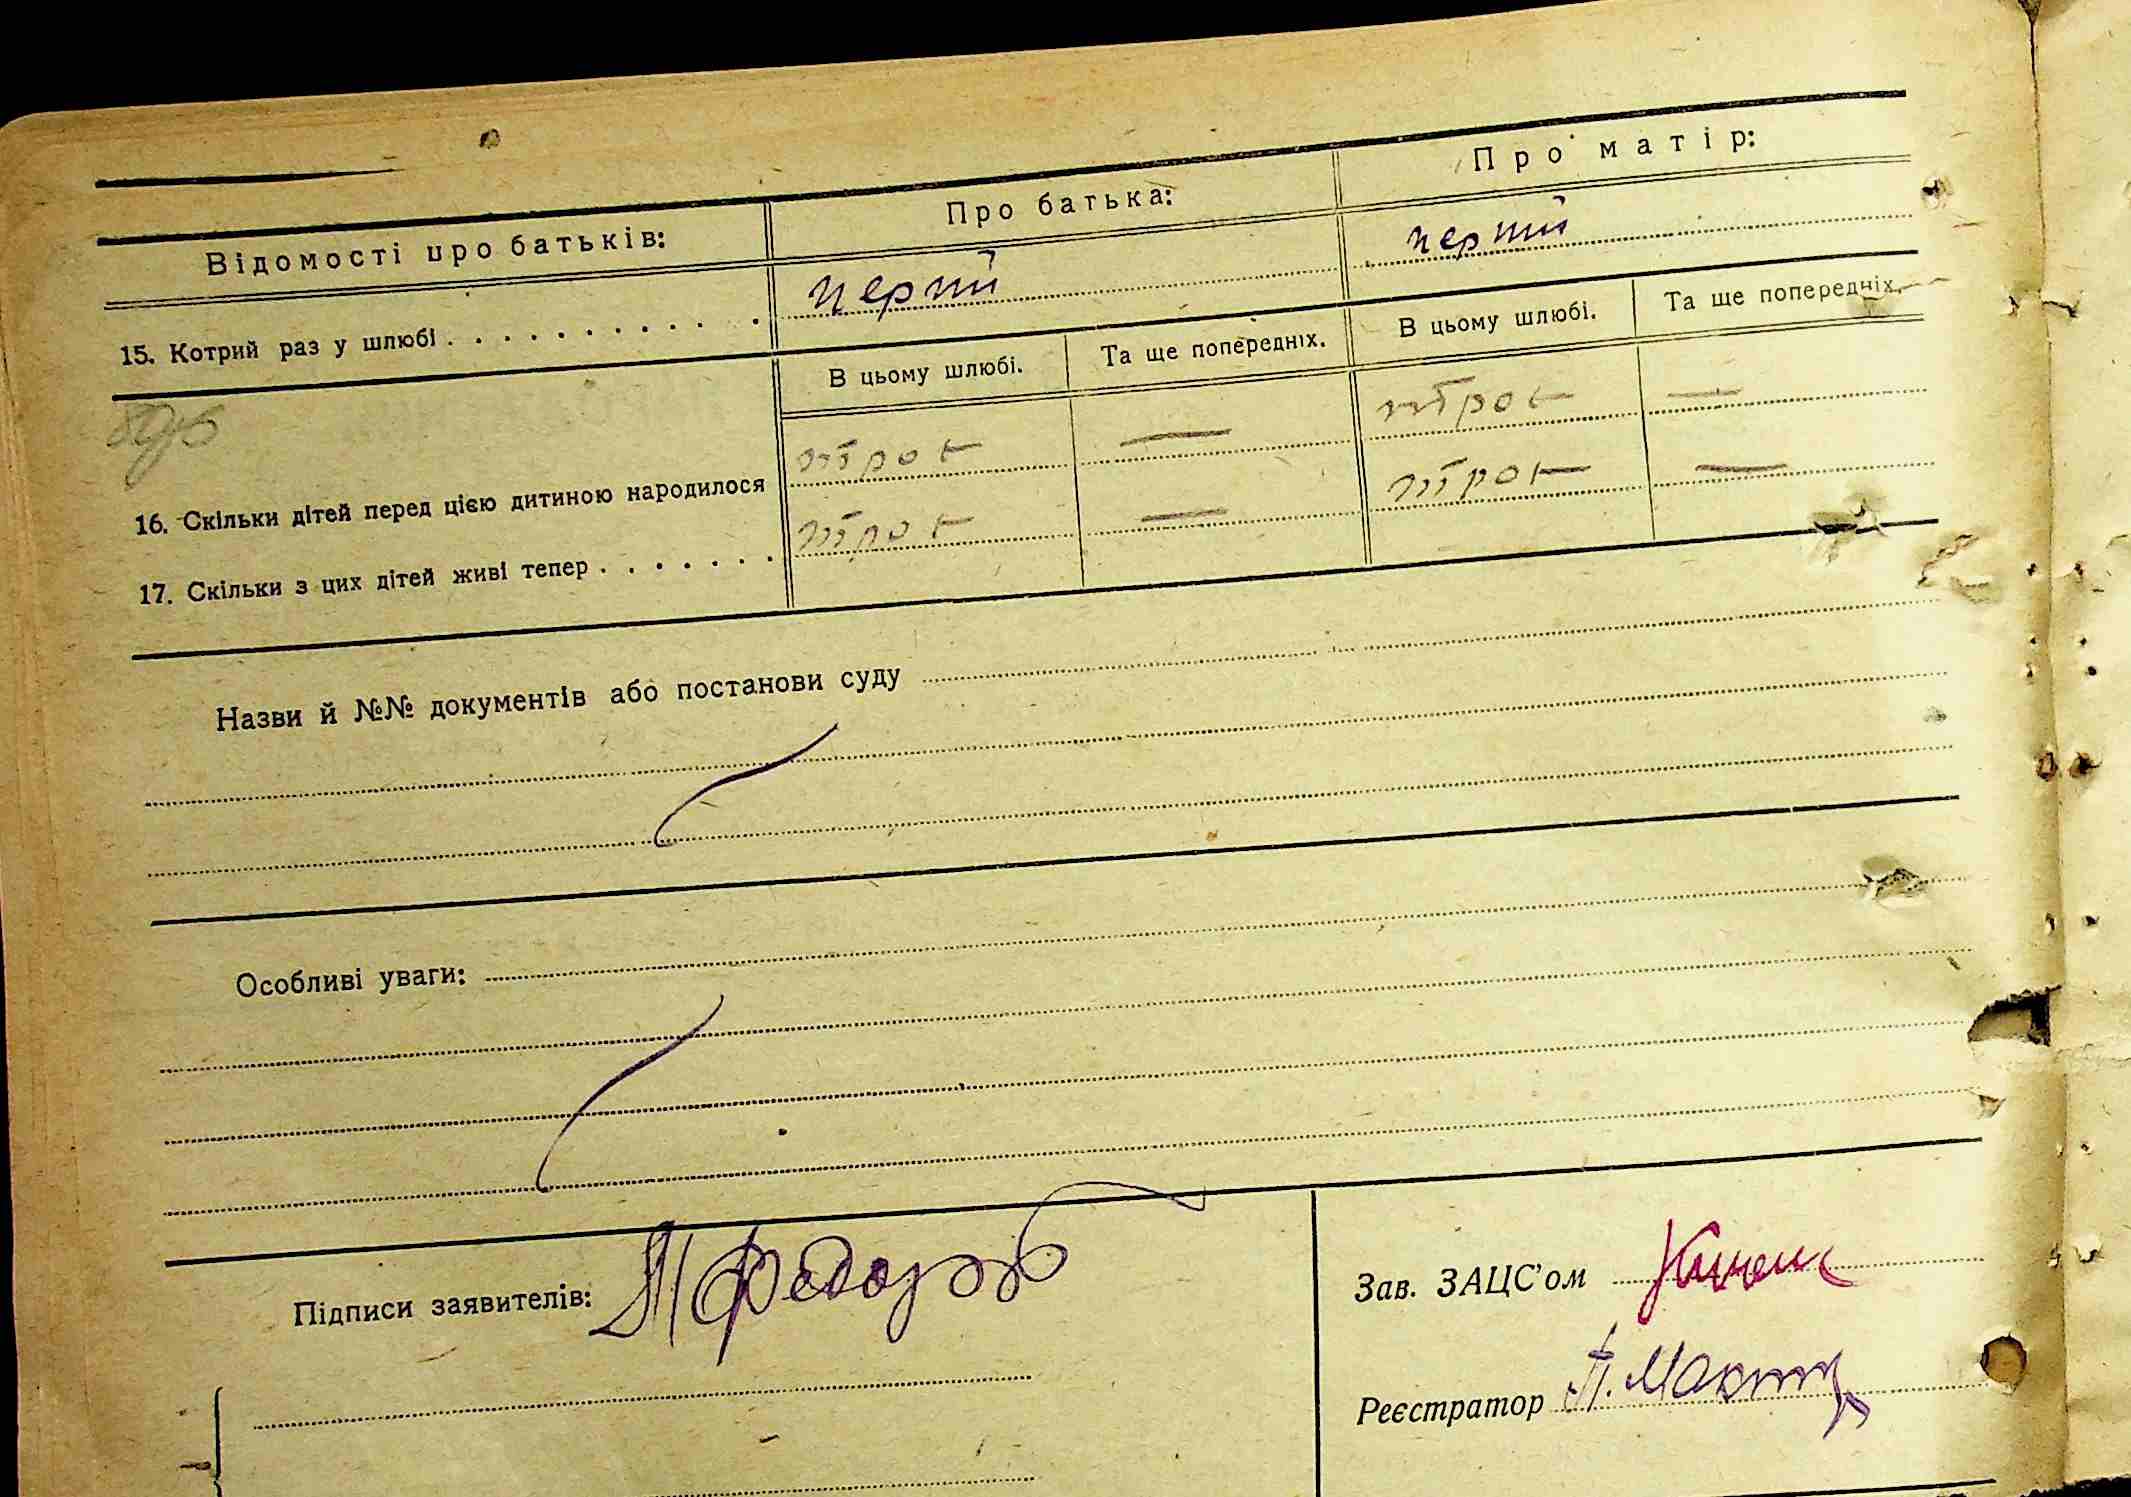 Відомості про батьків: Про батька: Про матір:
15. Котрий раз у шлюбі перший перший
В цьому шлюбі. Та ще попередніх. В цьому шлюбі. Та ще попередніх.
16. Скільки дітей перед цією дитиною народилося — —
17. Скільки з цих дітей живі тепер — —
Назви й №№ документів або постанови суду
Особливі уваги:
Підписи заявителів:
Зав. ЗАЦС'ом
Реєстратор